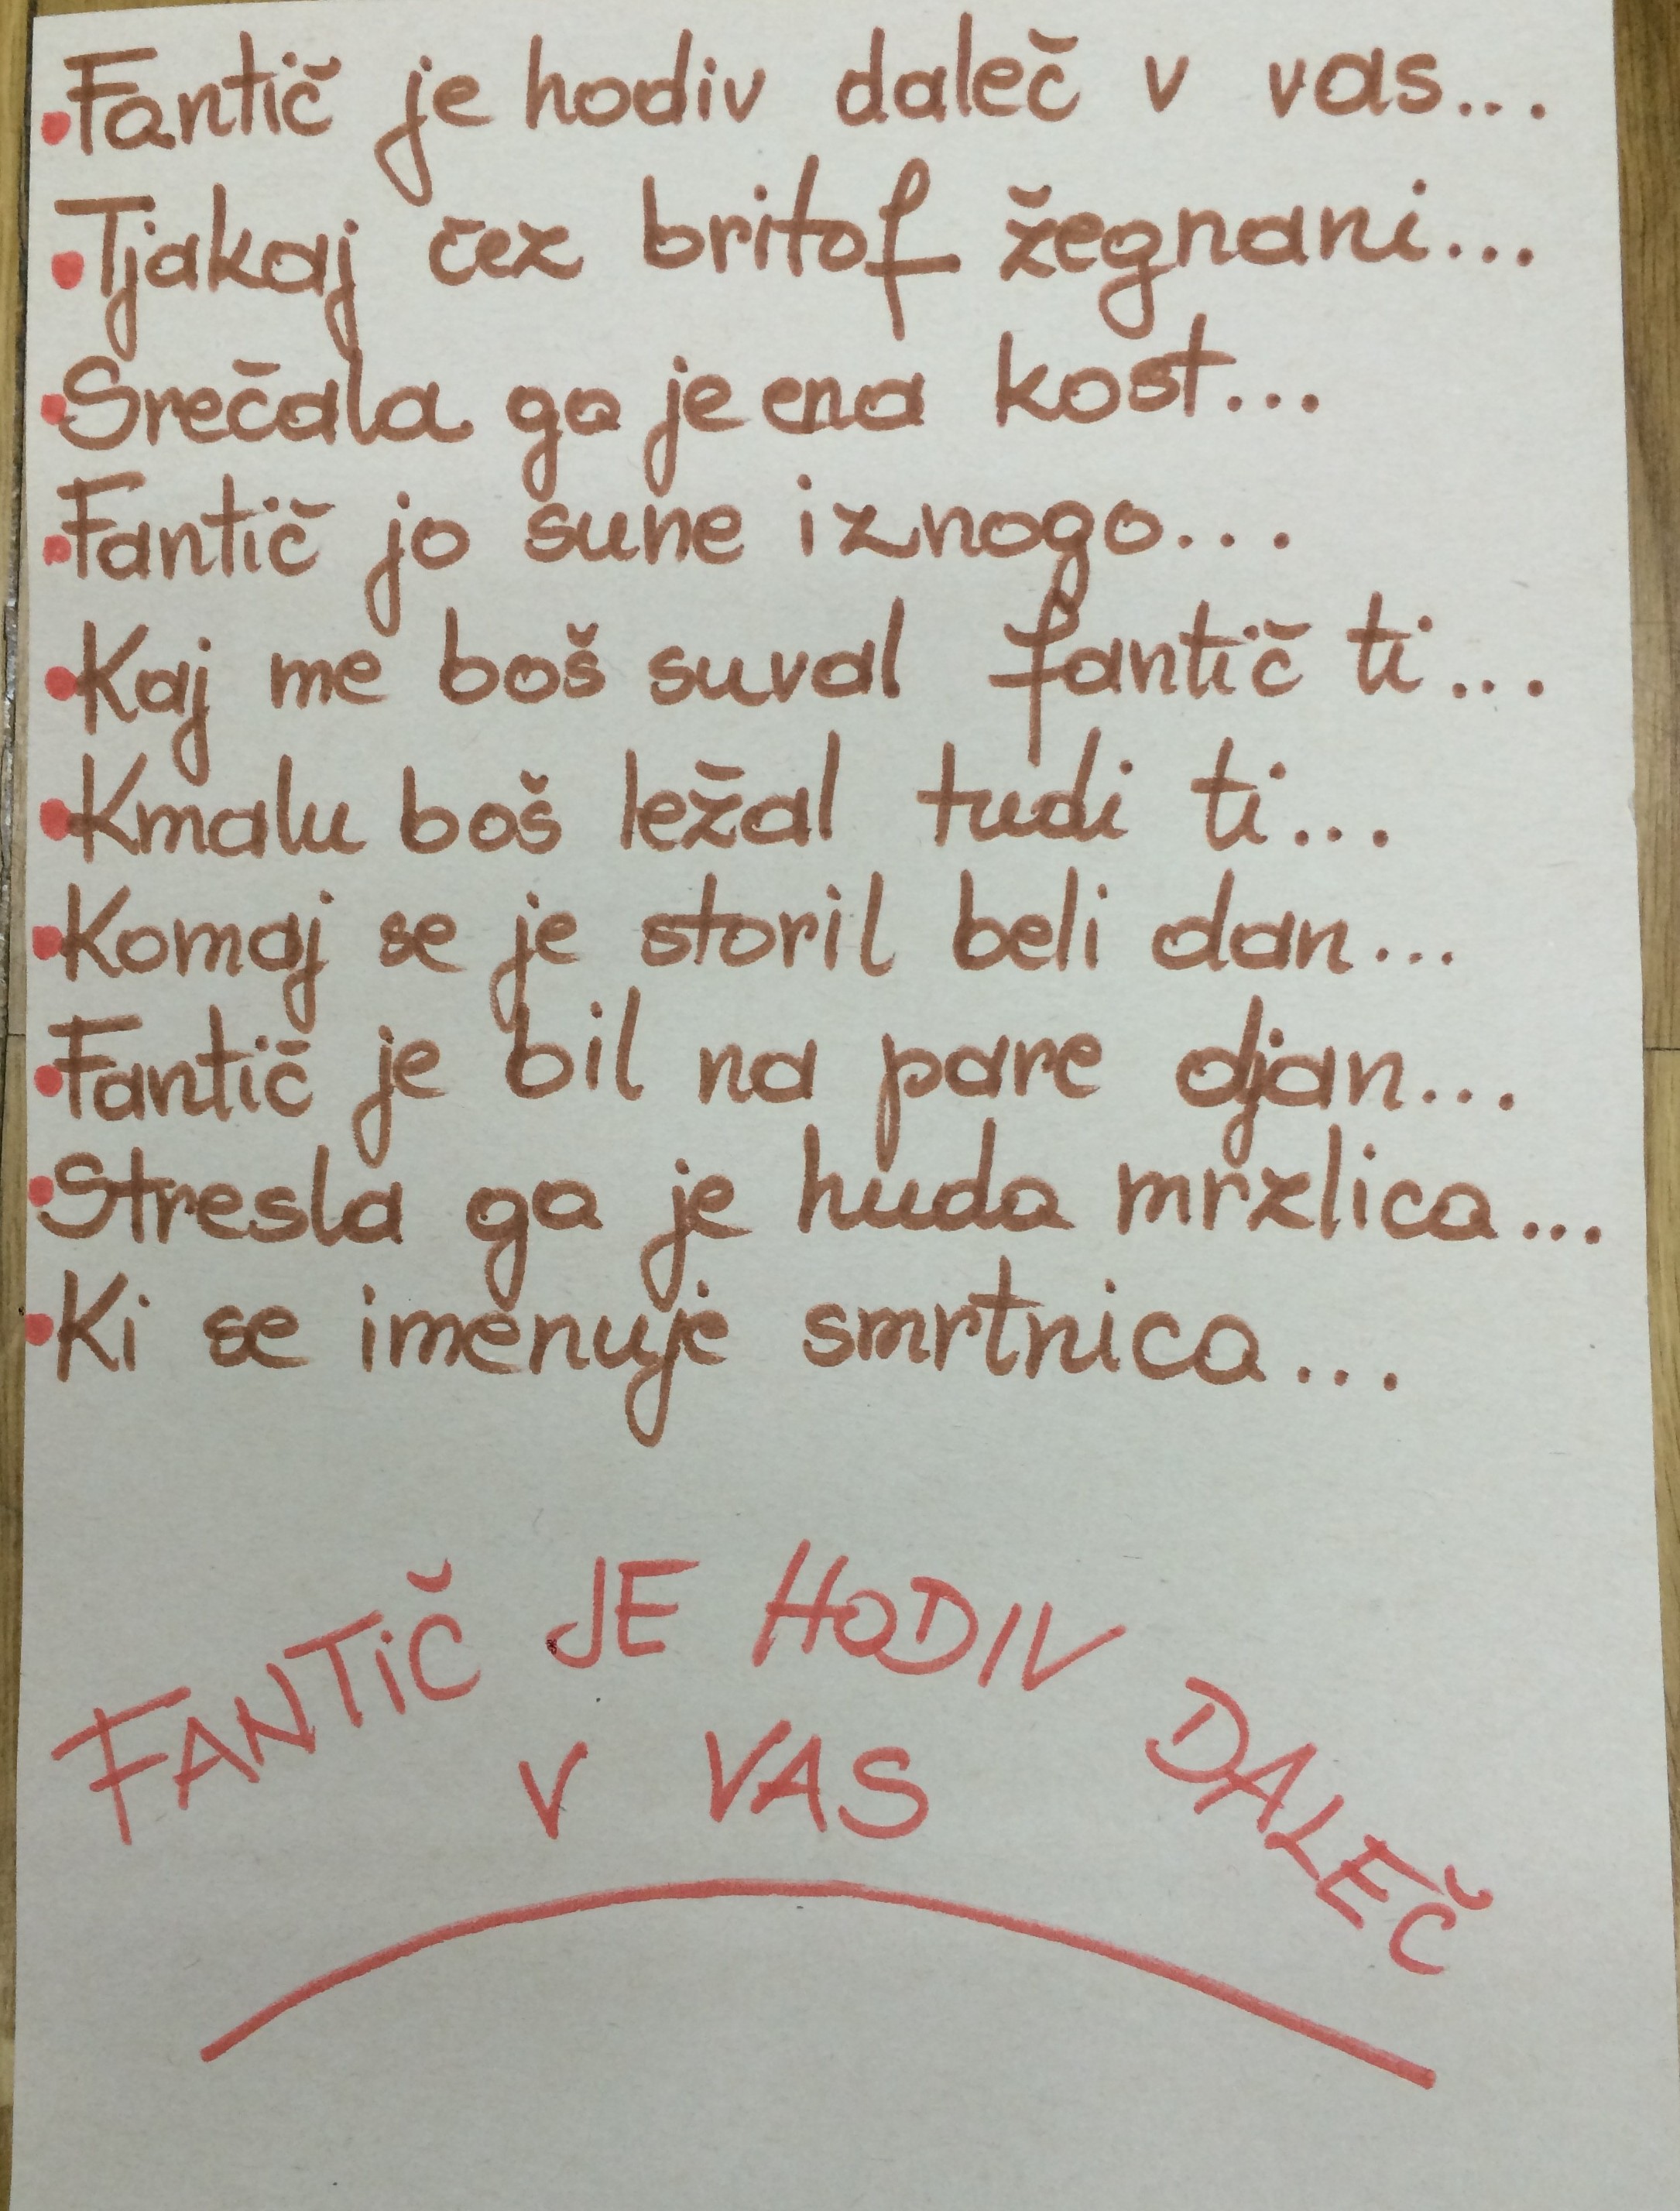 • Fantič je hodiv daleč v vas...
• Tjakaj čez britof žegnani...
• Srečala ga je ena kost...
• Fantič jo sune iznogo...
• Kaj me boš suval fantič ti...
• Kmalu boš ležal tudi ti...
• Komaj se je storil beli dan...
• Fantič je bil na pare djan...
• Stresla ga je huda mrzlica...
• Ki se imenuje smrtnica...
FANTIČ JE HODIV DALEČ
V VAS